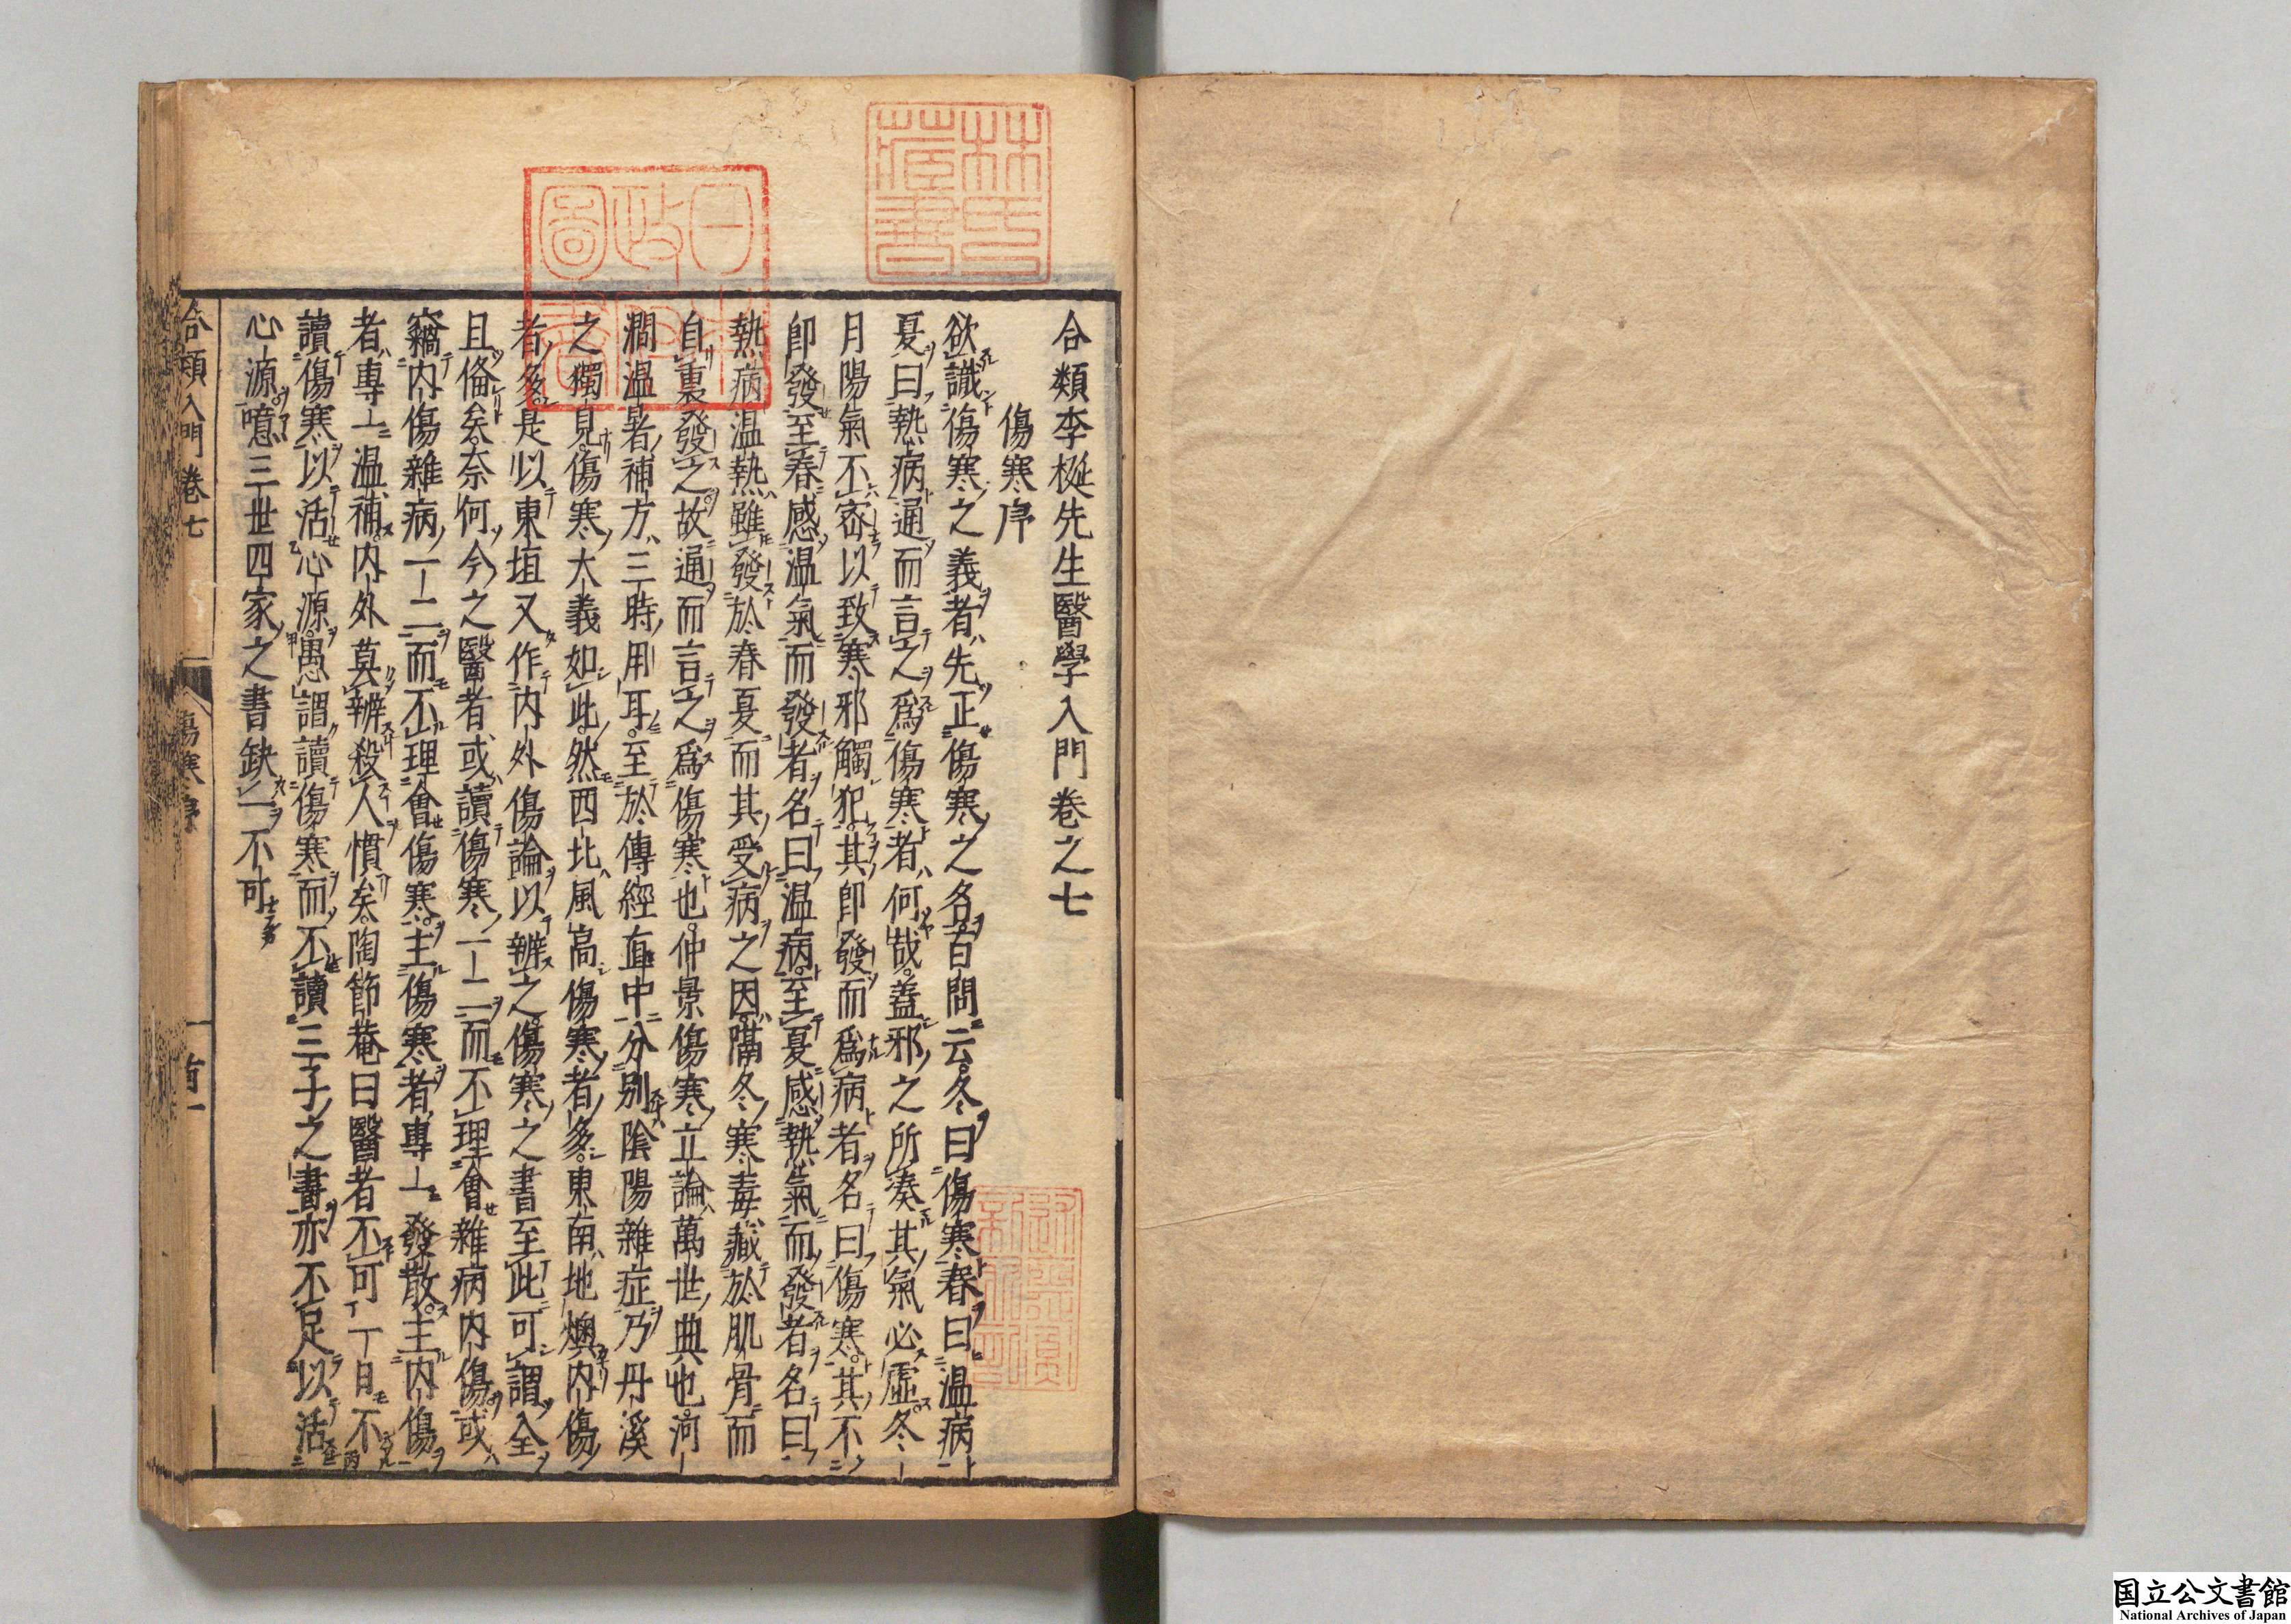 合類李梴先生醫學入門卷之七
傷寒序
欲識傷寒之義者先正傷寒之名百問云冬曰傷寒春曰温病
夏曰熱病通而言之爲傷寒者何哉蓋邪之所湊其氣必虛冬
月陽氣不密以致寒邪觸犯其即發而爲病者名曰傷寒其不
即發至春感温氣而發者名曰温病至夏感熱氣而發者名曰
熱病温熱雖發於春夏而其受病之因隔冬寒毒藏於肌骨而
自裏發之故通而言之爲傷寒也仲景傷寒立論萬世典也河
澗温暑補方三時用耳至於傳經直中分別陰陽雜症乃丹溪
之獨見傷寒大義如此然西北風高傷寒者多東南地燠内傷
者多是以東垣又作内外傷論以辨之傷寒之書至此可謂全
且俻矣奈何今之醫者或讀傷寒一二而不理會雜病内傷或
竊内傷雜病一二而不理會傷寒主傷寒者專一發散主内傷
者專一温補内外莫辨殺人慣矣陶節菴曰醫者不可一日不
讀傷寒以活心源愚謂讀傷寒而不讀三子之書亦不足以活
心源噫三世四家之書缺一不可
合類入門卷七
傷寒序
首一
林氏藏書
日本政府圖書
国立公文書館
National Archives of Japan